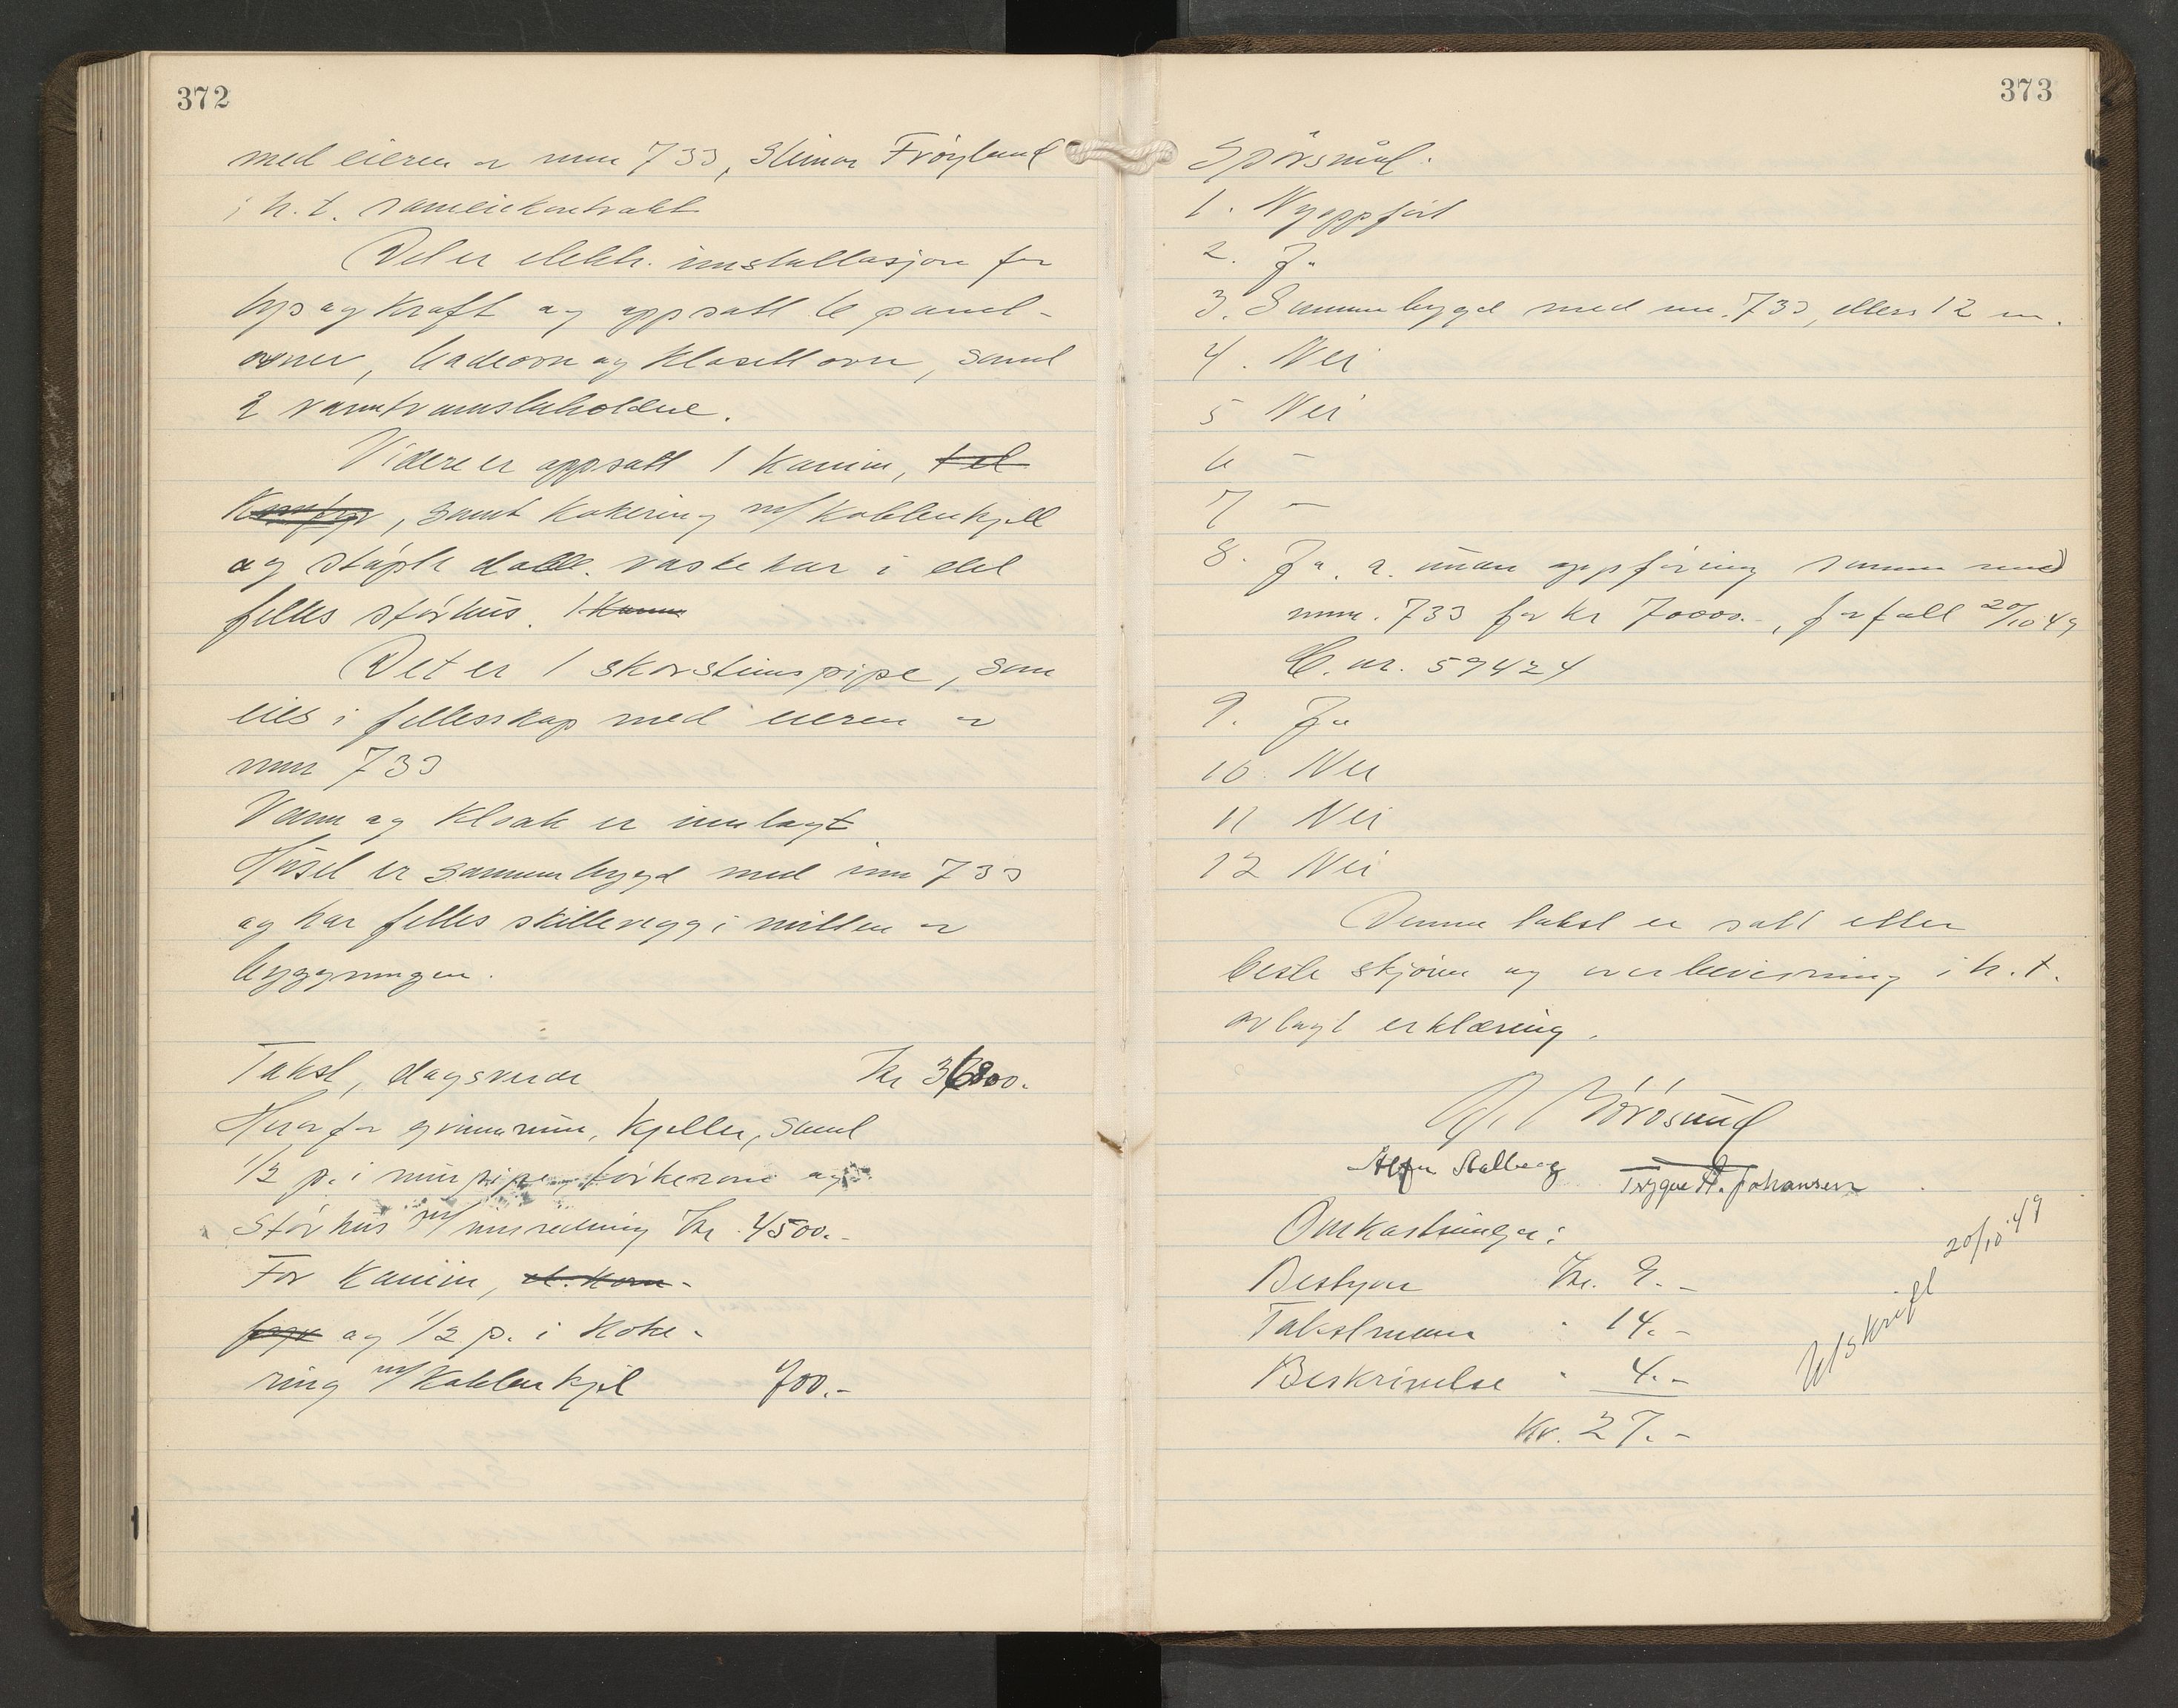 372
med eieren av mnr 733, Steinar Frøyland
i h. t. sameiekontrakt
Det er elektr. installasjon for
lys og kraft og oppsatt 6 panel-
ovner, badeovn og klosettovn, samt
2 varmtvannsbeholdere.
Videre er oppsatt 1 kamin, 1 el
Komfyr, samt kokering m/ kobberkjell
og støpte dobb. vaskekar i det
felles störhus. 1 Kamin
Det er 1 skorsteinspipe, som
eies i fellesskap med eieren av
mnr 733
Vann og kloak er innlagt
Huset er sammenbygd med mnr 733
og har felles skillevegg i midten av
bygningen.
Takst, dagsverdi Kr 36800.
Herav for grunnmur, kjeller, samt
1/2 p. i murpipe, tørkerom og
Störhus m/ innredning Kr. 4500.-
For Kamin, el. Kom-
fyr og 1/2 p. i koke-
ring m/ Kobberkjel 700.-
373
Spörsmål.
1. Nyoppfört
2. Ja
3. Sammenbygd med mnr. 733, ellers 12 m.
4. Nei
5 Nei
6 -
7 -
8. Ja, a. under oppföring samen med
mnr. 733 for kr 70000.-, forfall 20/10 49
C. nr. 59424
9. Ja
10. Nei
11 Nei
12 Nei
Denne takst er satt etter
beste skjønn og overbevisning i h. t.
avlagt erklæring.
Törösund
Stalberg Trygve A. Johansen
Omkostninger:
Bestyrer Kr. 9.-
Takstmenn " 14.-
Beskrivelse " 4.-
Kr. 27.-
Utskrift 20/10 49